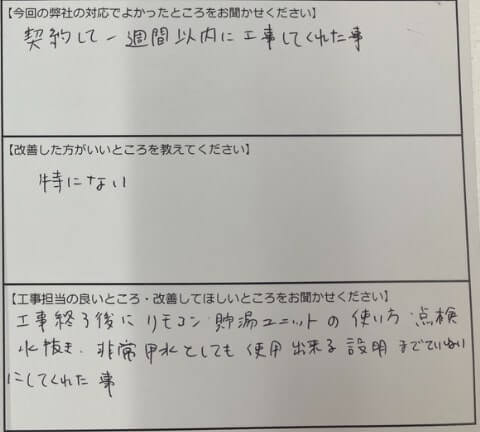 【今回の弊社の対応でよかったところをお聞かせください】
契約して一週間以内に工事してくれた事
【改善した方がいいところを教えてください】
特にない
【工事担当の良いところ・改善してほしいところをお聞かせください】
工事終了後にリモコン・貯湯ユニットの使い方、点検
水抜き、非常用水としても使用出来る説明までていねい
にしてくれた事